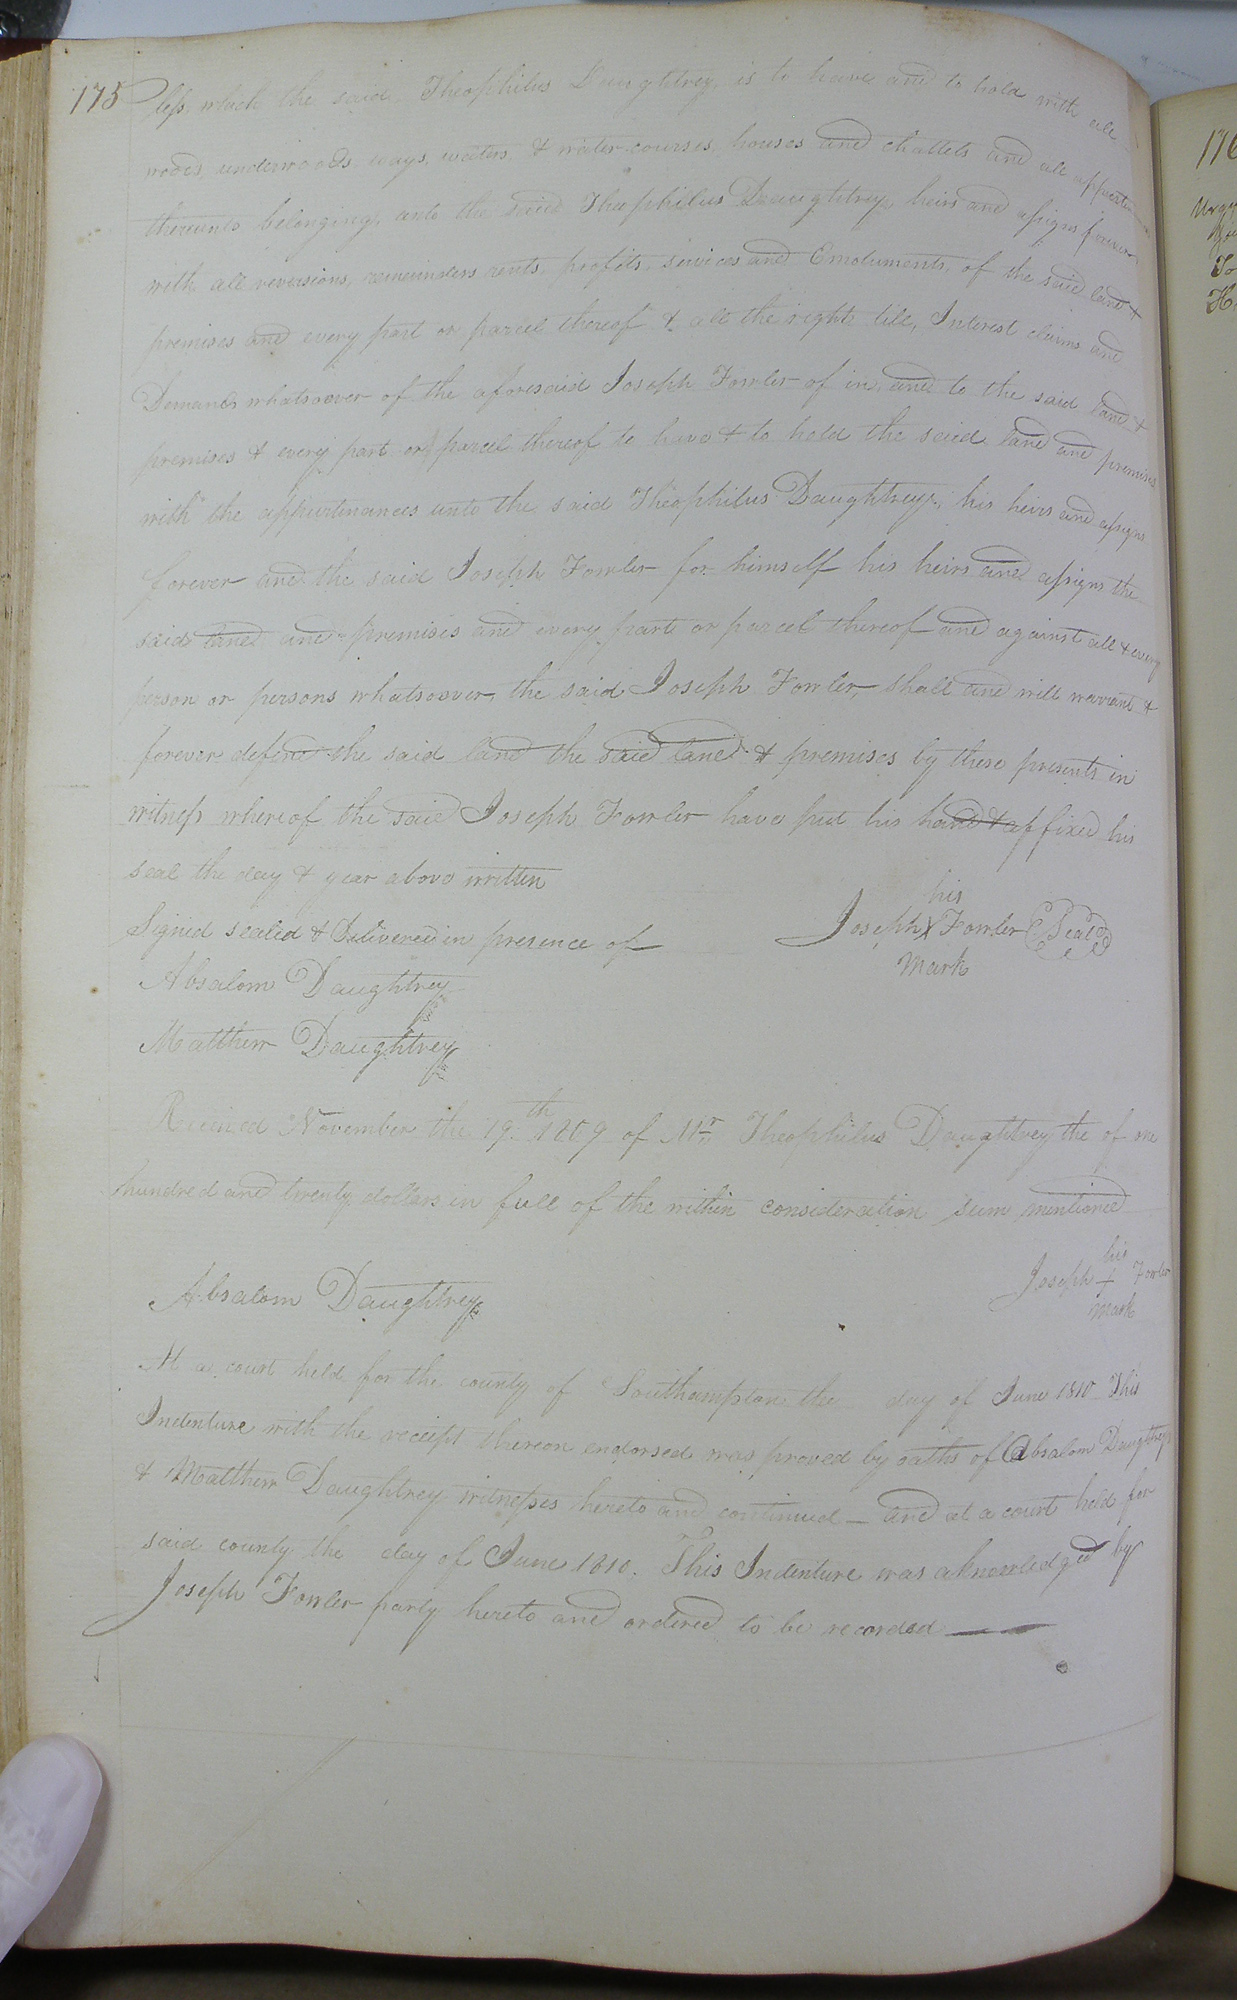 175
less which the said Theophilus Daughtrey, is to have and to hold with all
woods, underwoods ways, waters & water courses, houses and chattels and all
thereunto belonging, unto the said Theophilus Daughtrey, heirs and assigns forever
with all reversions, remeinders rents, profits, services and Emoluments, of the said land &
premises and every part or parcel thereof & all the right title, Interest claims and
Demands whatsoever of the aforesaid Joseph Fowler of in, and to the said land &
premises & every part or parcel thereof to have & to hold the said land and premises
with the appurtinances unto the said Theophilus Daughtrey, his heirs and assigns
forever and the said Joseph Fowler for himself his heirs and assigns the
said land and premises and every parts or parcel thereof and against all & every
person or persons whatsoever, the said Joseph Fowler shall and will warrant &
forever defend the said land the said land & premises by these presents in
witness whereof the said Joseph Fowler have put his hand & affixed his
seal the day & year above written
Signed sealed & Delivered in presence of
his
Joseph X Fowler Seal
Mark
Absalom Daughtrey
Matthew Daughtrey
Received November the 19th 1809 of Mr Theophilus Daughtrey the of one
hundred and twenty dollars in full of the within consideration sum mentioned
his
Joseph + Fowler
Mark
Absalom Daughtrey
At a court held for the county of Southampton the day of June 1810 This
Indenture with the receipt thereon endorsed was proved by oaths of Absalom Daughtrey
& Matthew Daughtrey witnesses hereto and continued — and at a court held for
said county the day of June 1810. This Indenture was aknowledged by
Joseph Fowler party hereto and ordered to be recorded